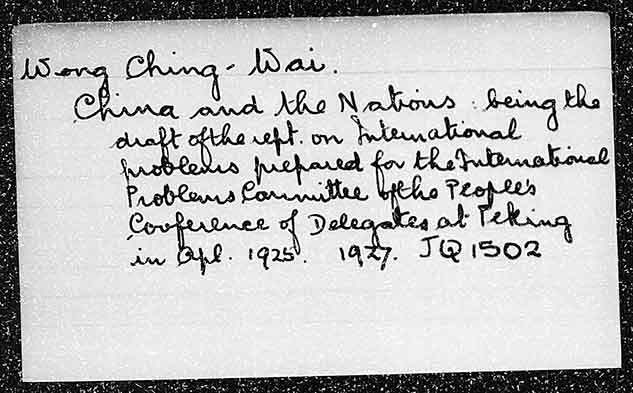 Wong Ching-Wai.
China and the Nations : being the
draft of the rept. on International
problems prepared for the International
Problems Committee of the People's
Conference of Delegates at Peking
in Apl. 1925. 1927. JQ1502